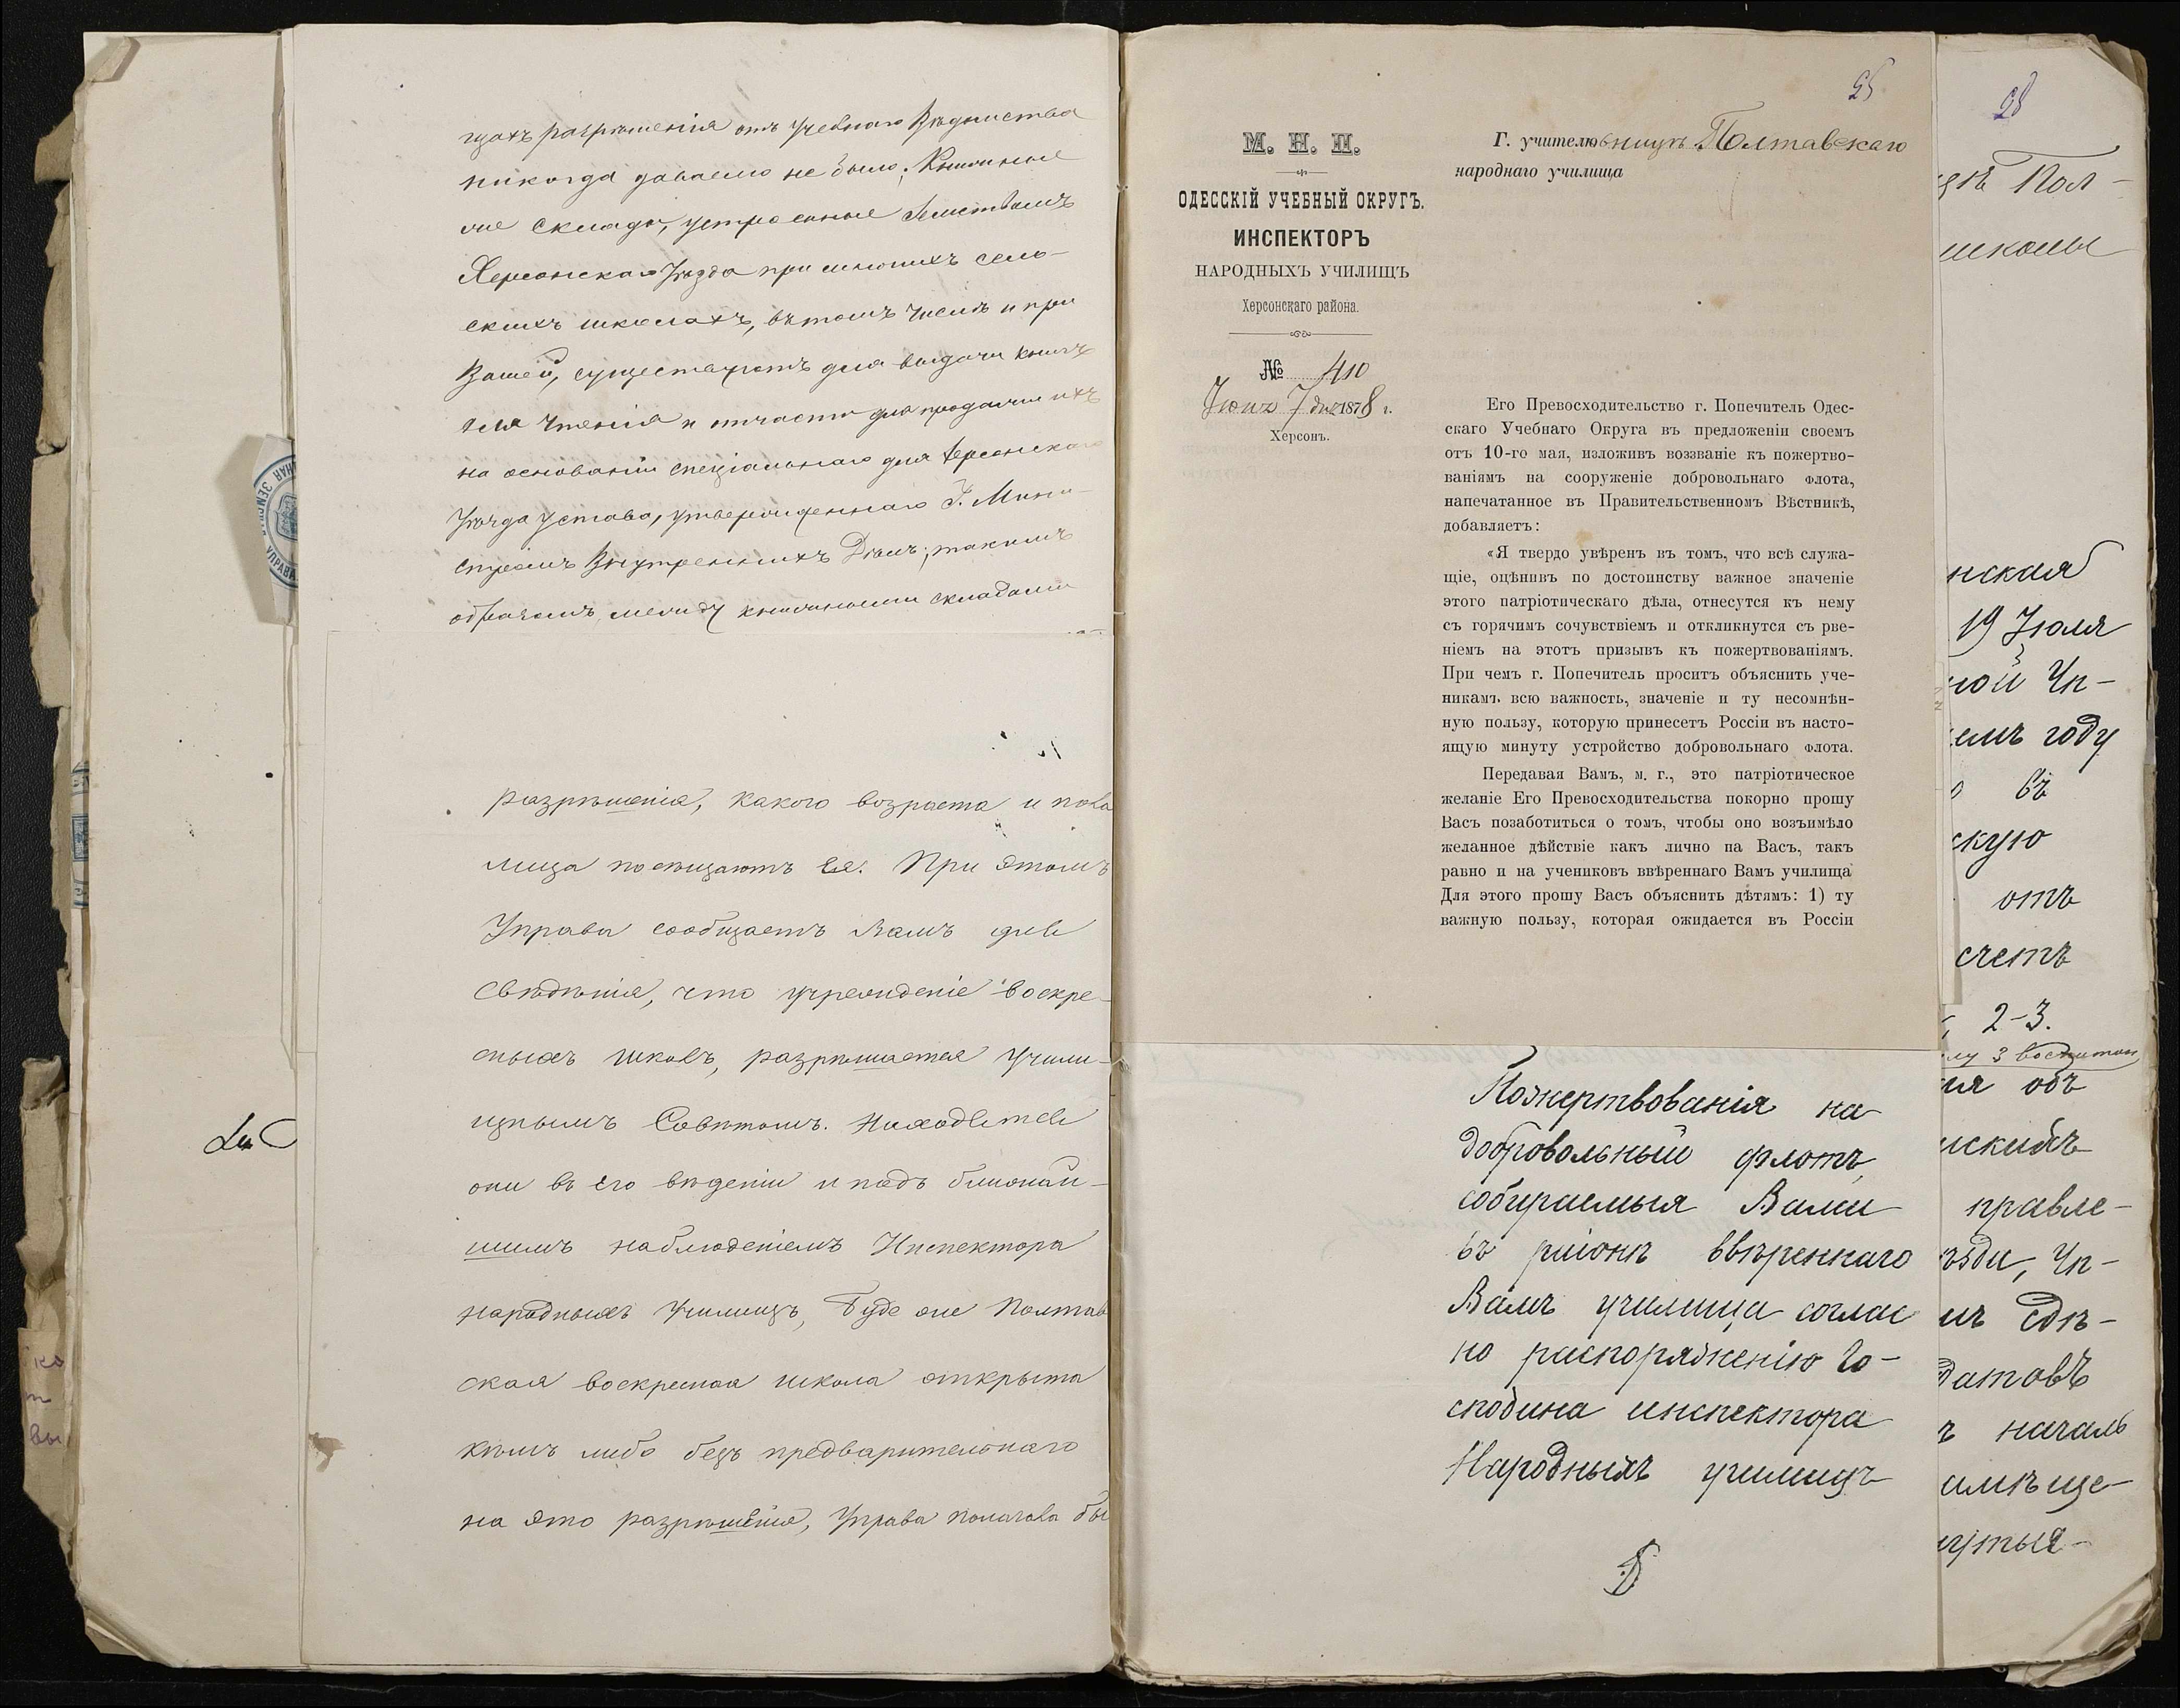 щахъ разрѣшенія отъ Учебнаго Вѣдомства
никогда даваемо не было; Книжные
же склады, устроенные Земствомъ
Херсонскаго Уѣзда при многихъ сель-
скихъ школахъ, въ томъ числѣ и при
Вашей, существуютъ для выдачи книгъ
для чтенія и отчасти для продажи ихъ
на основаніи спеціальнаго для Херсонскаго
Уѣзда устава, утвержденнаго Г. Мини-
стромъ Внутреннихъ Дѣлъ; такимъ
образомъ между книжными складами
разрѣшенія, какого возраста и пола
лица посѣщаютъ ея. При этомъ
Управа сообщаетъ Вамъ для
свѣдѣнія, что учрежденіе воскре-
сныхъ школъ, разрѣшается Учили-
щнымъ Совѣтомъ. Находятся
они въ его вѣденіи и подъ ближай-
шимъ наблюденіемъ Инспектора
народныхъ Училищъ, Буде же Полтав
ская воскресная школа открыта
кѣмъ либо безъ предварительнаго
на это разрѣшенія, Управа полагала бы
25
М. Н. П.
ОДЕССКІЙ УЧЕБНЫЙ ОКРУГЪ.
ИНСПЕКТОРЪ
НАРОДНЫХЪ УЧИЛИЩЪ
Херсонскаго района.
№ 410
Іюнь 7 дня 1878 г.
Херсонъ.
Г. учителювницѣ Полтавскаго
народнаго училища
Его Превосходительство г. Попечитель Одес-
скаго Учебнаго Округа въ предложеніи своемъ
отъ 10-го мая, изложивъ воззваніе къ пожертво-
ваніямъ на сооруженіе добровольнаго флота,
напечатанное въ Правительственномъ Вѣстникѣ,
добавляетъ:
«Я твердо увѣренъ въ томъ, что всѣ служа-
щіе, оцѣнивъ по достоинству важное значеніе
этого патріотическаго дѣла, отнесутся къ нему
съ горячимъ сочувствіемъ и откликнутся съ рве-
ніемъ на этотъ призывъ къ пожертвованіямъ.
При чемъ г. Попечитель проситъ объяснить уче-
никамъ всю важность, значеніе и ту несомнѣн-
ную пользу, которую принесетъ Россіи въ насто-
ящую минуту устройство добровольнаго флота.
Передавая Вамъ, м. г., это патріотическое
желаніе Его Превосходительства покорно прошу
Васъ позаботиться о томъ, чтобы оно возъимѣло
желанное дѣйствіе какъ лично на Васъ, такъ
равно и на учениковъ ввѣреннаго Вамъ училища
Для этого прошу Васъ объяснить дѣтямъ: 1) ту
важную пользу, которая ожидается въ Россіи
Пожертвованія на
добровольный флотъ,
собираемыя Вами
въ раіонѣ ввѣреннаго
Вамъ училища соглас
но распоряженію Го-
сподина инспектора
Народныхъ училищъ
28
цѣ Пол-
школы
нская
19 Іюля
ной Уп-
емъ году
въ
скую
отъ
счетъ
2-3.
му 3 воспитан
ия объ
нскихъ
правле-
ѣзды, Уп-
мъ сдѣ-
датовъ
ъ началь
имѣще-
утыя-